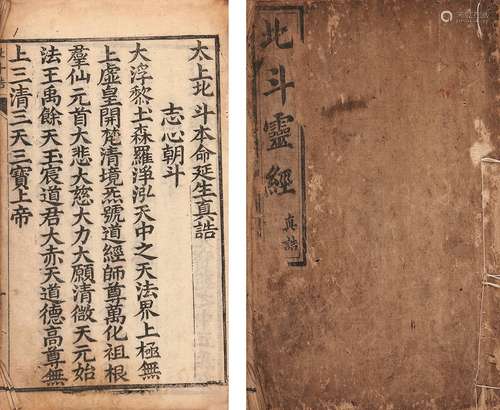 北斗靈經
真誥
太上北斗本命延生真誥
志心朝斗
大浮黎土森羅淨泓天中之天法界上極無
上虛皇開梵清境炁號道經師尊萬化祖根
羣仙元首大悲大慈大力大願清微天元始
法王禹餘天玉宸道君大赤天道德高尊無
上三清三天三寶上帝